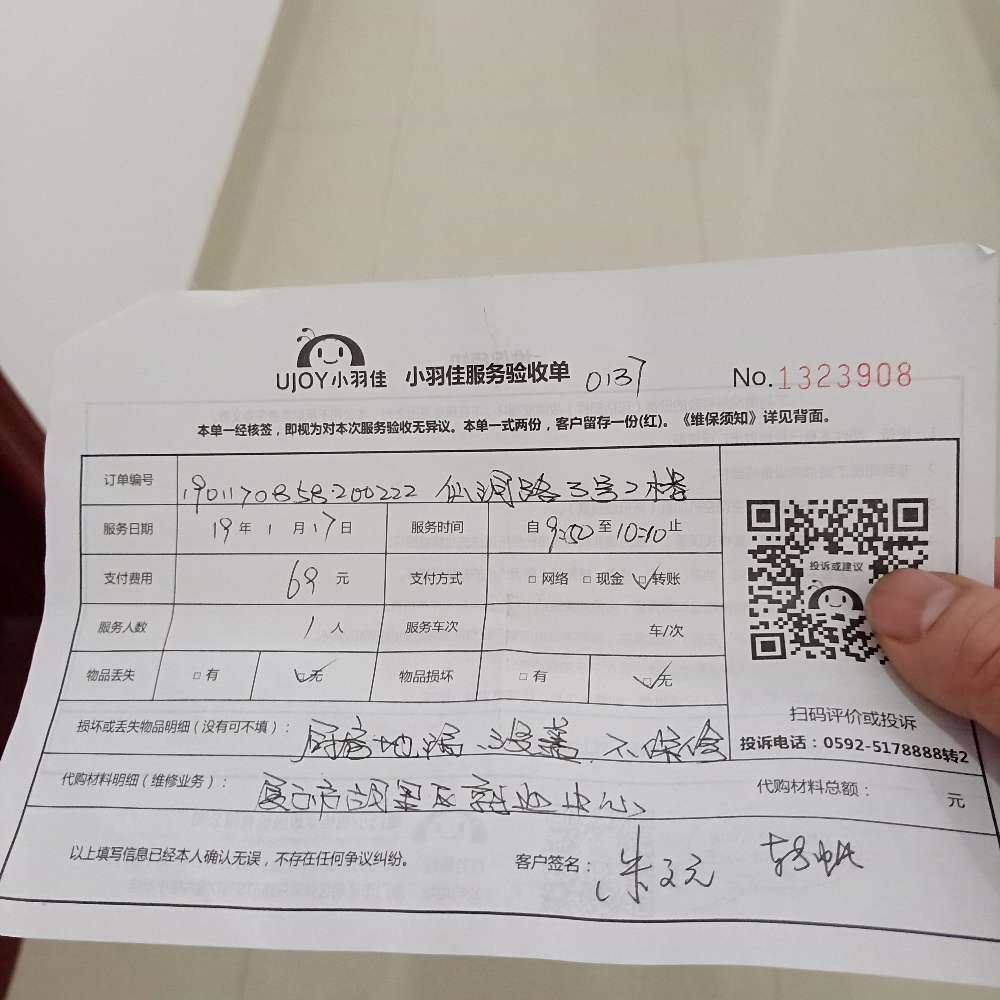 UJOY小羽佳 小羽佳服务验收单 0137 No.1323908
本单一经核签，即视为对本次服务验收无异议。本单一式两份，客户留存一份(红)。《维保须知》详见背面。
订单编号 1901170858200222 仙洞路3号2楼
服务日期 19年1月17日 服务时间 自9:50至10:10止
支付费用 69元 支付方式 □网络 □现金 □转账
投诉或建议
服务人数 1人 服务车次 车/次
物品丢失 □有 □无 物品损坏 □有 □无
扫码评价或投诉
投诉电话：0592-5178888转2
损坏或丢失物品明细（没有可不填）： 厨房地漏 没盖 不保修
代购材料明细（维修业务）： 代购材料总额： 元
以上填写信息已经本人确认无误，不存在任何争议纠纷。 客户签名： 转帐